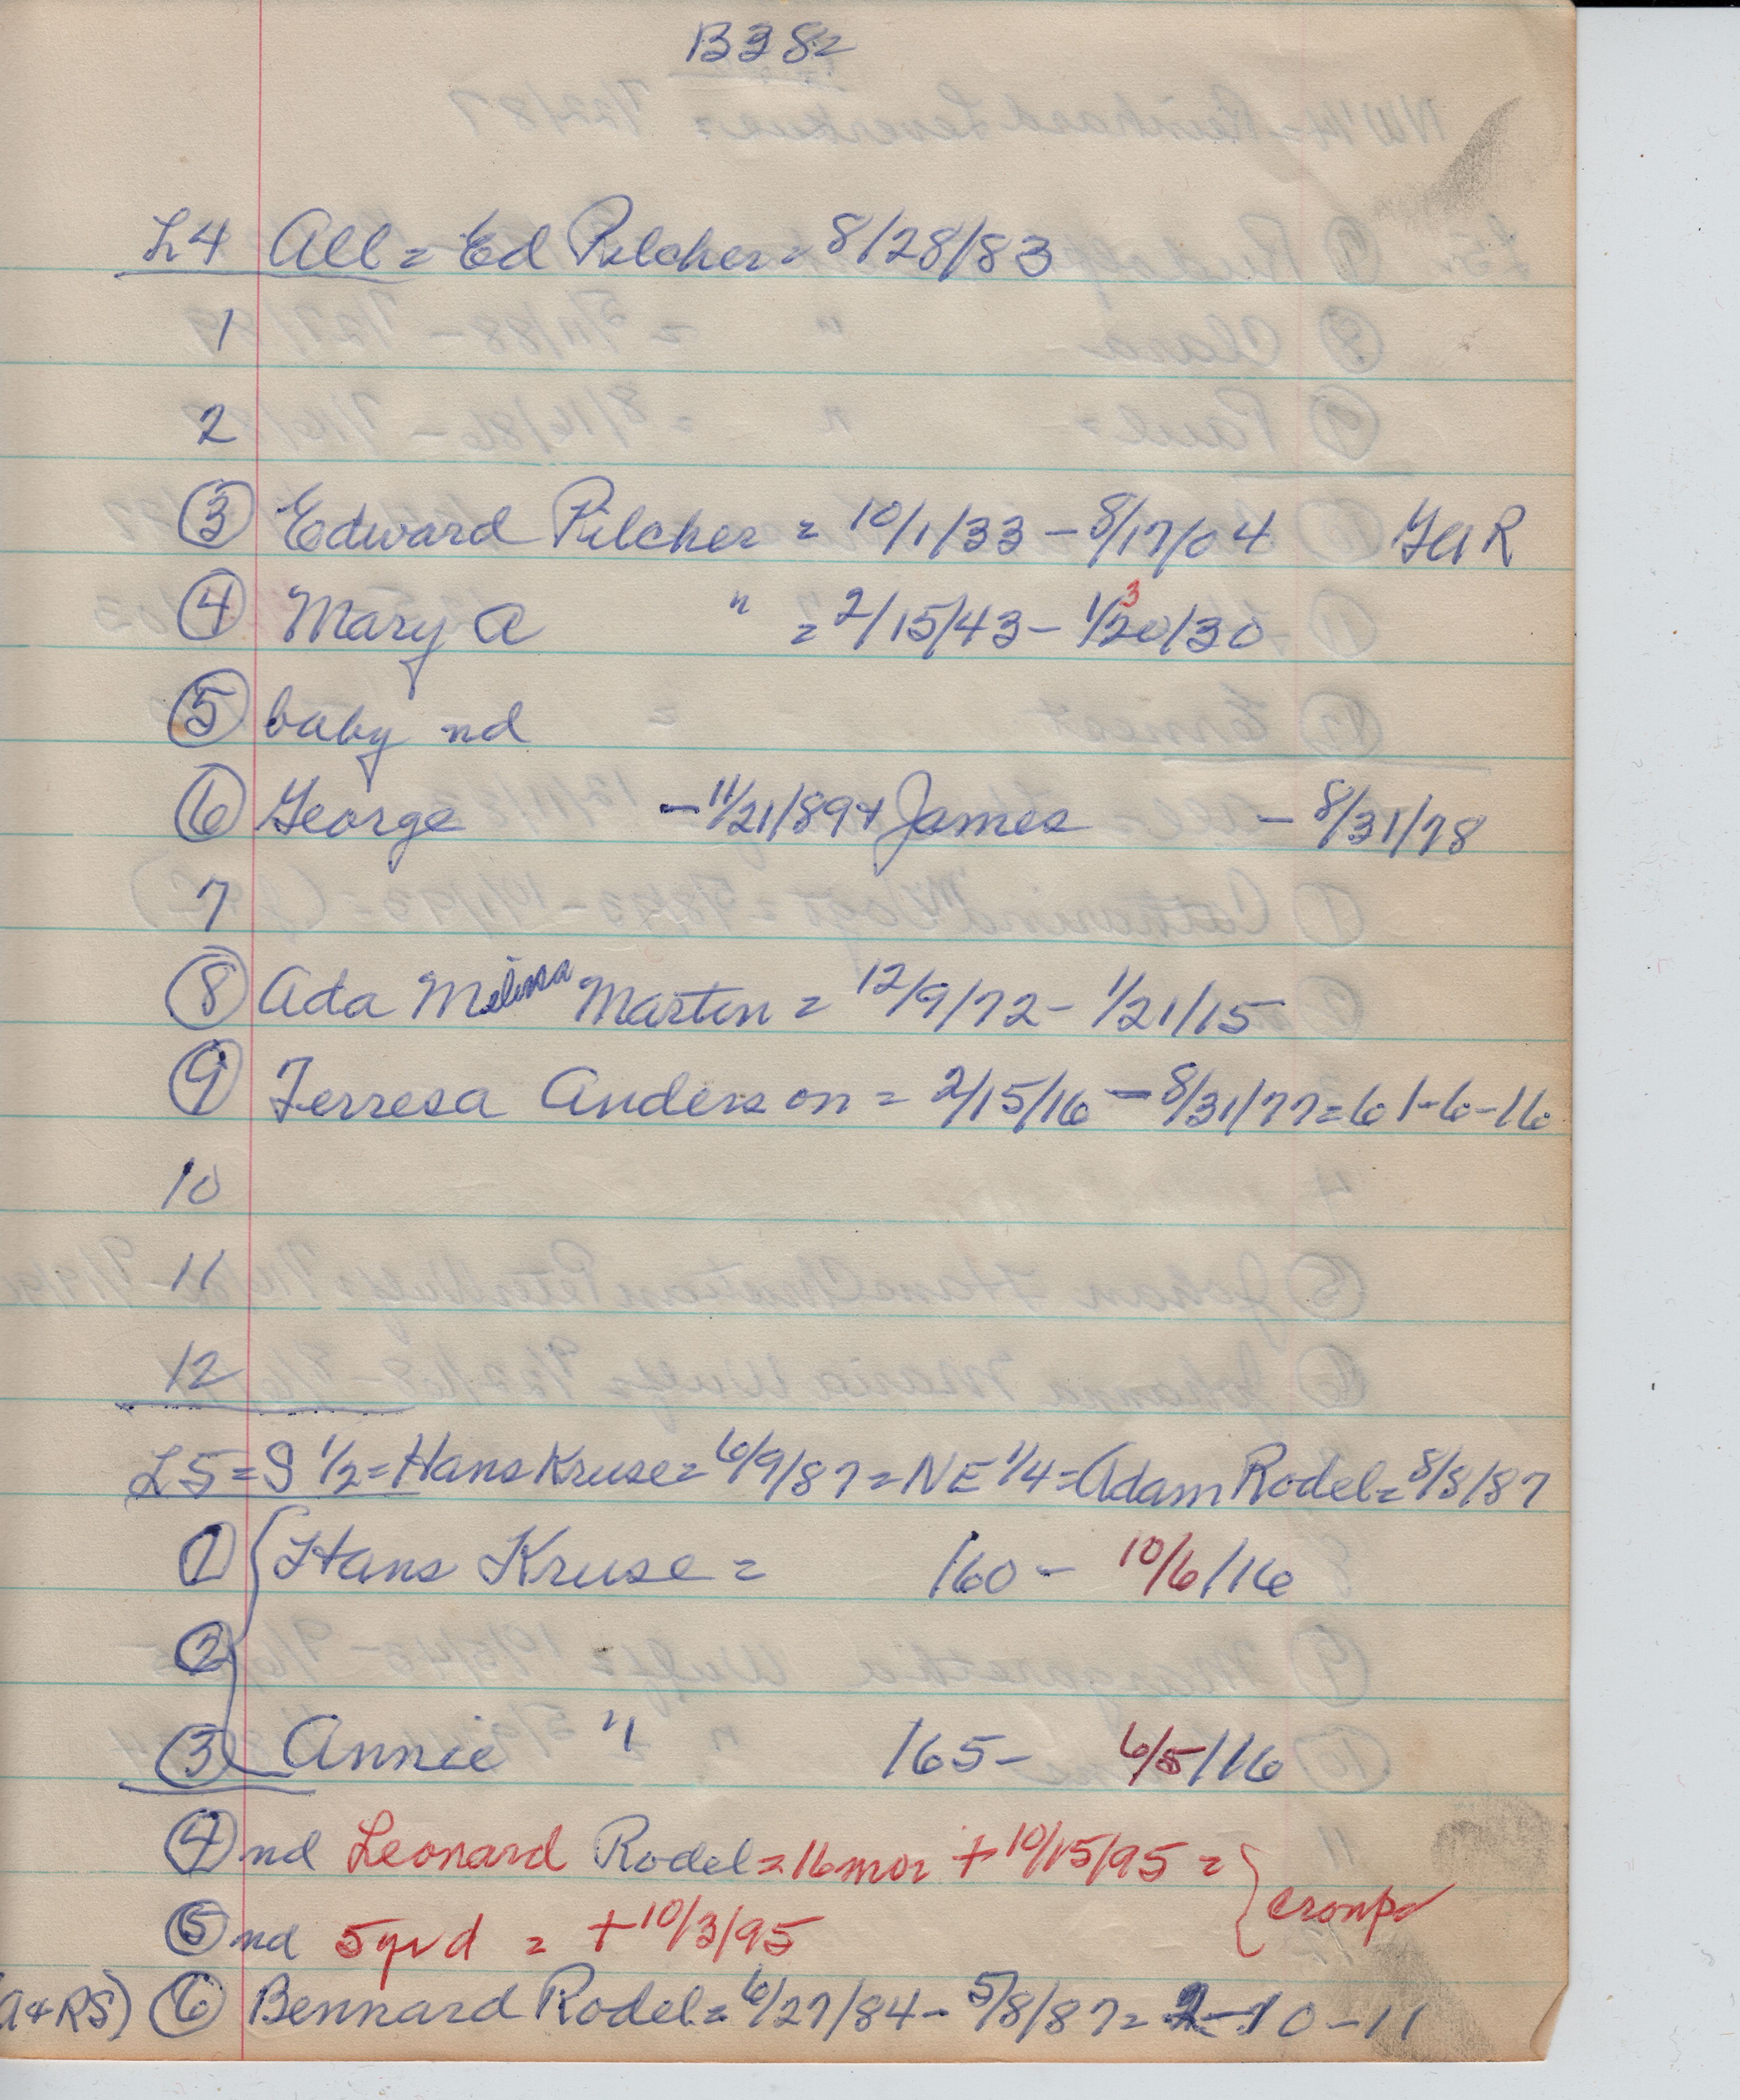 B382
L4 All = Ed Pilcher = 8/28/83
1
2
3 Edward Pilcher = 10/1/33 - 8/17/04 GaR
4 Mary A " = 2/15/43 - 1/20/30 3
5 baby nd
6 George - 11/21/89 + James - 8/31/78
7
8 Ada Melissa Martin = 12/9/72 - 1/21/15
9 Terresa Anderson = 2/15/16 - 8/31/77 = 61-6-16
10
11
12
L5 = S 1/2 = Hans Kruse = 6/9/87 = NE 1/4 = Adam Rodel = 8/8/87
1 { Hans Kruse = 160 - 10/6/16
2
3 Annie " 165 - 6/5/16
4 nd Leonard Rodel = 16 mos + 10/15/95 =
} croup
5 nd 5 yr d = + 10/3/95
A+RS) 6 Bennard Rodel = 6/27/84 - 5/8/87 = 2-10-11